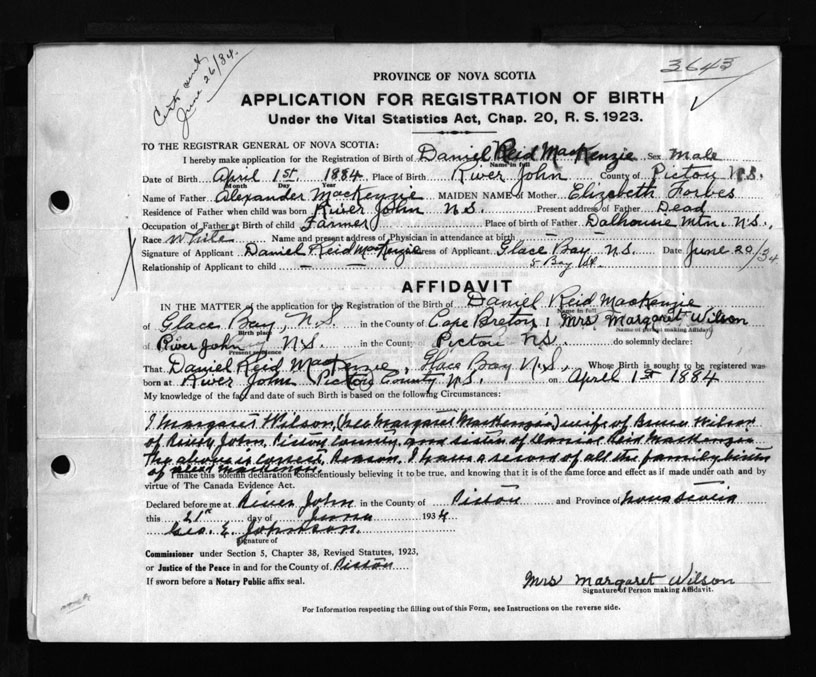 Cert sent
June 26/34.
3643
PROVINCE OF NOVA SCOTIA
APPLICATION FOR REGISTRATION OF BIRTH
Under the Vital Statistics Act, Chap. 20, R. S. 1923.
TO THE REGISTRAR GENERAL OF NOVA SCOTIA:
I hereby make application for the Registration of Birth of Daniel Reid MacKenzie Sex Male
Name in full
Date of Birth April 1st 1884 Place of Birth River John County of Pictou N.S.
Month Day Year
Name of Father Alexander MacKenzie MAIDEN NAME of Mother Elizabeth Forbes
Residence of Father when child was born River John N.S. Present address of Father Dead
Occupation of Father at Birth of child Farmer Place of birth of Father Dalhousie Mtn. N.S.,
Race White Name and present address of Physician in attendance at birth
Signature of Applicant Daniel Reid MacKenzie Address of Applicant Glace Bay N.S. Date June 20/34
Relationship of Applicant to child — — 8 Bay
AFFIDAVIT
IN THE MATTER of the application for the Registration of the Birth of Daniel Reid Mackenzie
Name in full
of Glace Bay, N.S. in the County of Cape Breton I Mrs Margaret Wilson
Birth place Name of Person making Affidavit
of River John N.S. in the County Pictou N.S. do solemnly declare:
Present residence
That Daniel Reid MacKenzie, Glace Bay N.S. Whose Birth is sought to be registered was
born at River John Pictou County N.S. on April 1st 1884
My knowledge of the fact and date of such Birth is based on the following Circumstances:
I Margaret Wilson, (nee Margaret MacKenzie) wife of Bruce Wilson
of River John, Pictou County, and sister of Daniel Reid MacKenzie
The above is correct, Reason, I have a record of all the family births
of MacKenzie
I make this solemn declaration conscientiously believing it to be true, and knowing that it is of the same force and effect as if made under oath and by
virtue of The Canada Evidence Act.
Declared before me at River John in the County of Pictou and Province of Nova Scotia
this 21st day of June 1934
Geo. E. Johnson.
Signature of
Commissioner under Section 5, Chapter 38, Revised Statutes, 1923,
or Justice of the Peace in and for the County of Pictou
If sworn before a Notary Public affix seal.
Mrs Margaret Wilson
Signature of Person making Affidavit.
For Information respecting the filling out of this Form, see Instructions on the reverse side.